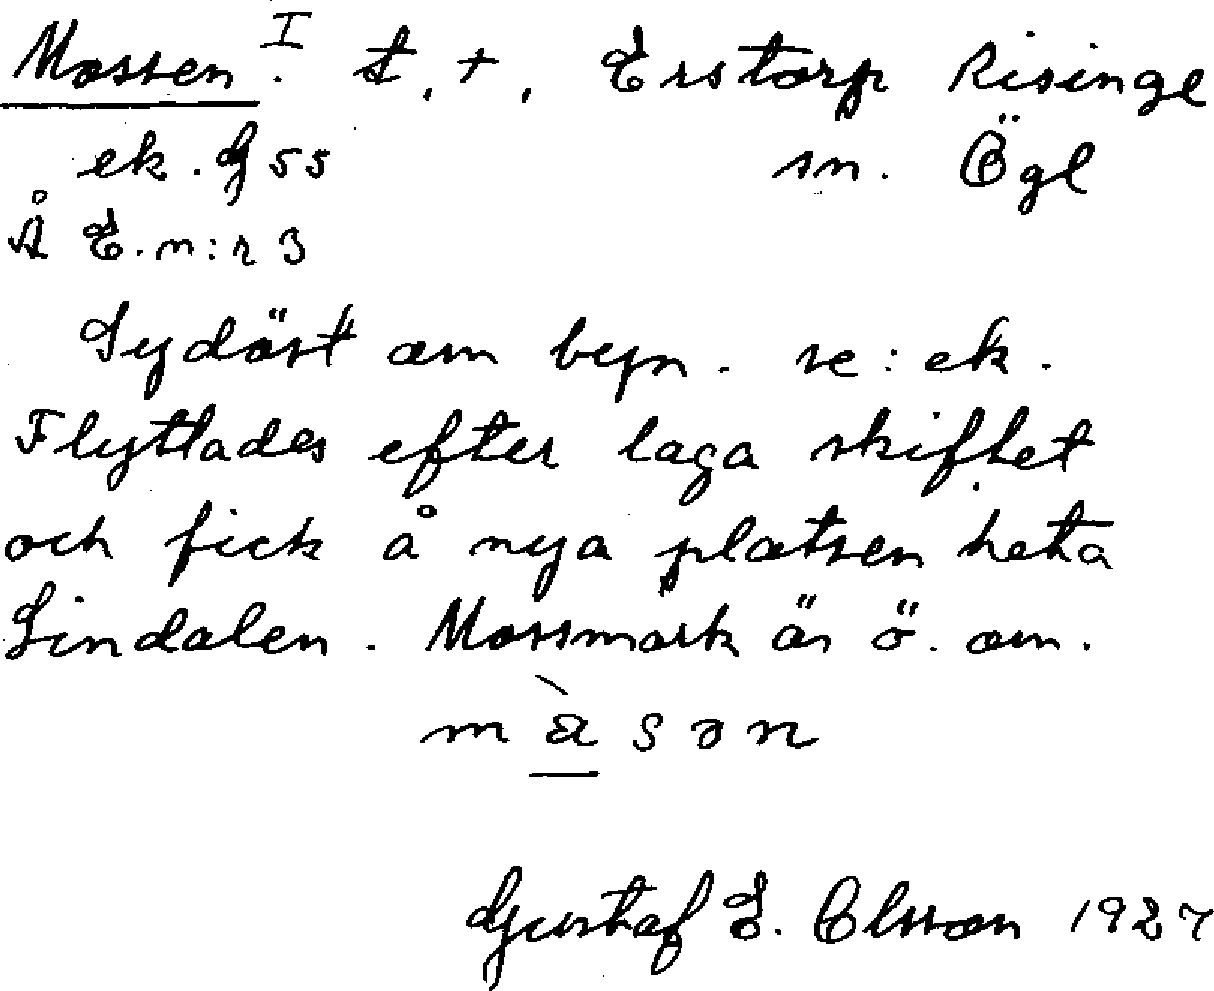 Mossen I. t., +, Erstorp Risinge
ek. G 55 sn. Ögl
Å E. n:r 3
Sydöst om byn. se: ek.
Flyttades efter laga skiftet
och fick å nya platsen heta
Lindalen. Mossmark är ö. om.
màsən
Gustaf E. Olsson 1927